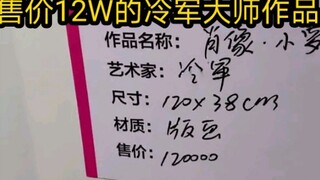 售价12W的冷军大师作品
作品名称: 肖像·小
艺术家: 冷军
尺寸: 120x38cm
材质: 版画
售价: 120000